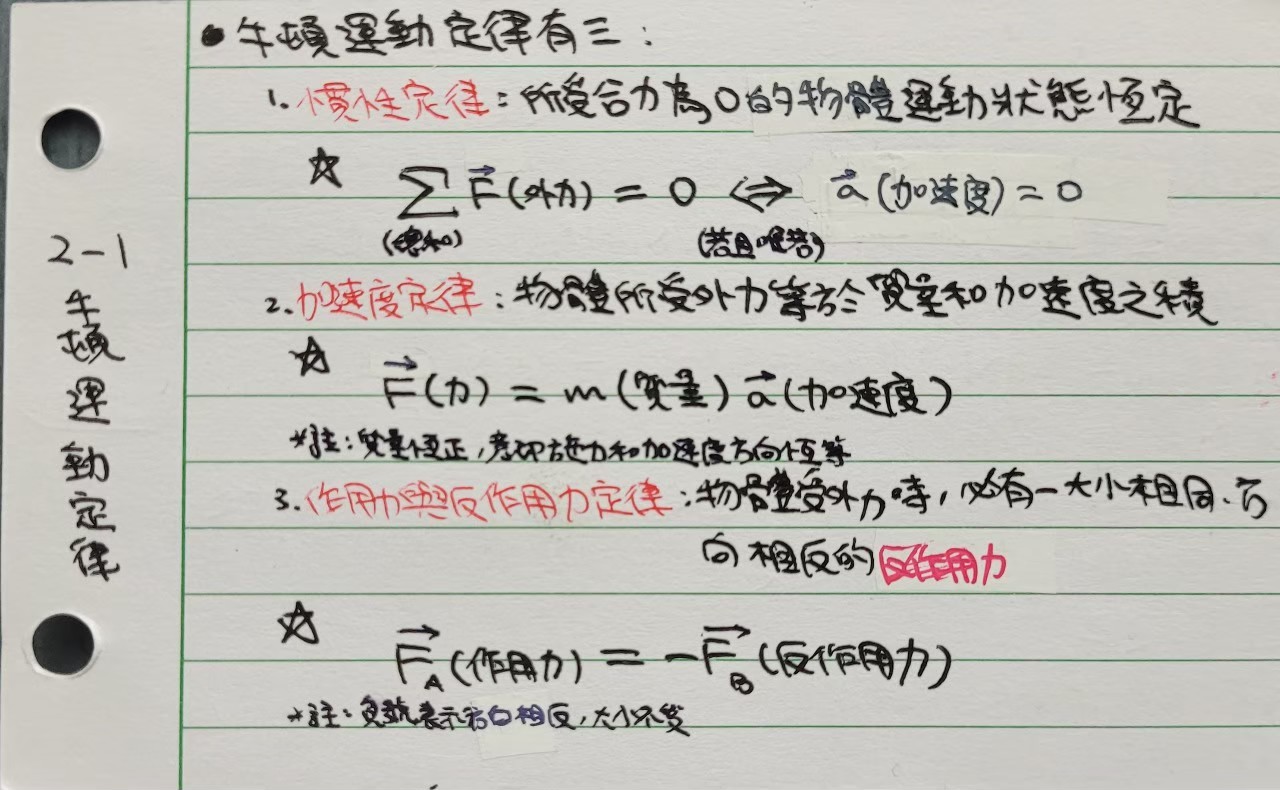 2-1
牛頓運動定律
•牛頓運動定律有三：
1.慣性定律：所受合力為0的物體運動狀態恆定
☆ ∑F⃗(外力) = 0 ⇔ a⃗(加速度) = 0
(總和) (若且唯若)
2.加速度定律：物體所受外力等於質量和加速度之積
☆ F⃗(力) = m(質量) a⃗(加速度)
*註：質量恆正，意即施力和加速度方向恆等
3.作用力與反作用力定律：物體受外力時，必有一大小相同、方
向相反的反作用力
☆ F⃗_A(作用力) = -F⃗_B(反作用力)
*註：負號表示方向相反，大小不變